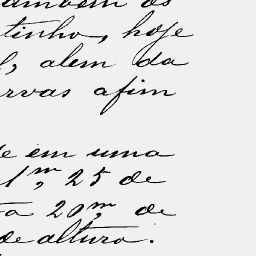 tambem os
tinho, hoje
, alem da
rvas afim
e em uma
1m, 25 de
ta 20m, de
de altura.